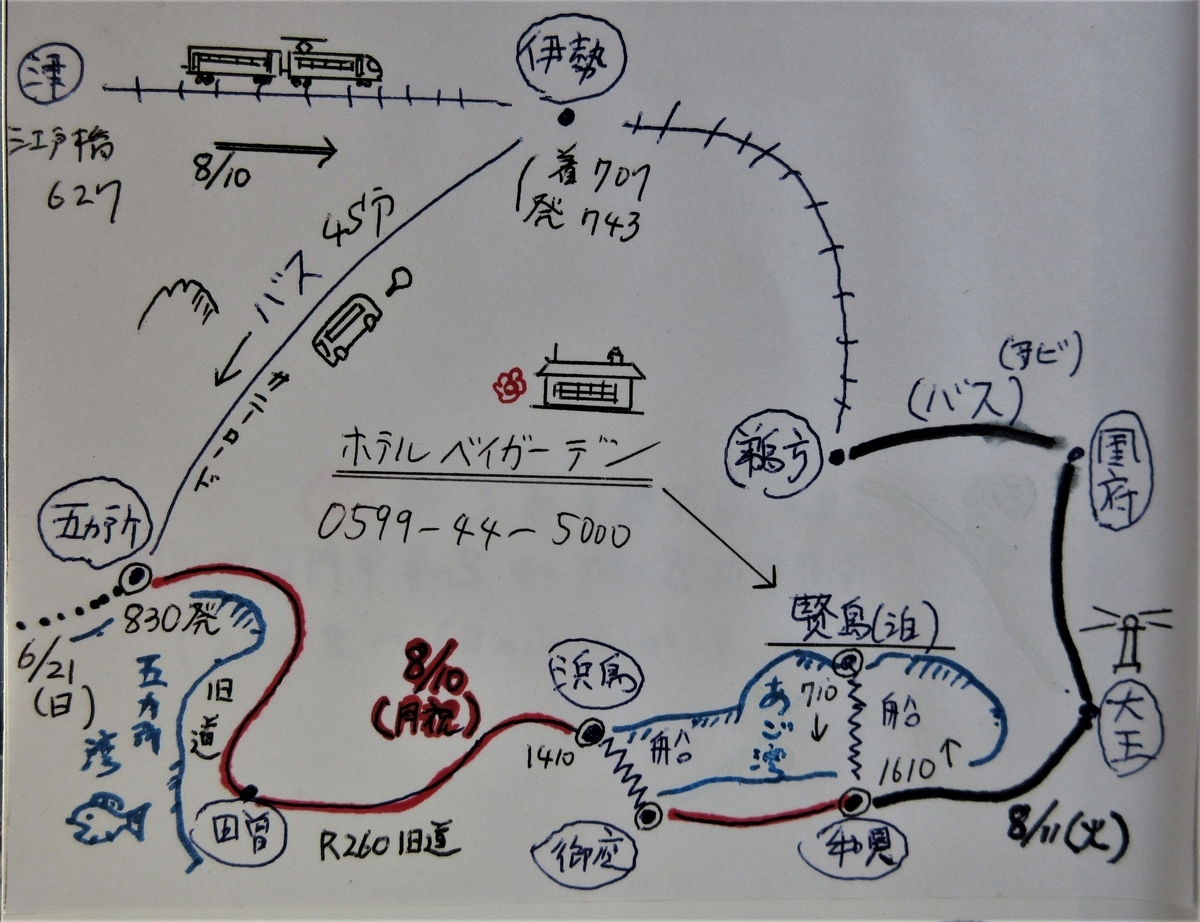 津
江戸橋
627
8/10
伊勢
着 707
発 743
45分
バス
サニーロード
ホテル ベイガーデン
0599-44-5000
鵜方
(バス)
国府
五カ所
830発
6/21
(日)
五カ所湾
旧道
8/10
(月祝)
田曽
R260旧道
浜島
1410
船
御座
賢島(泊)
あご湾
710
↓
船
1610↑
和具
大王
8/11(火)